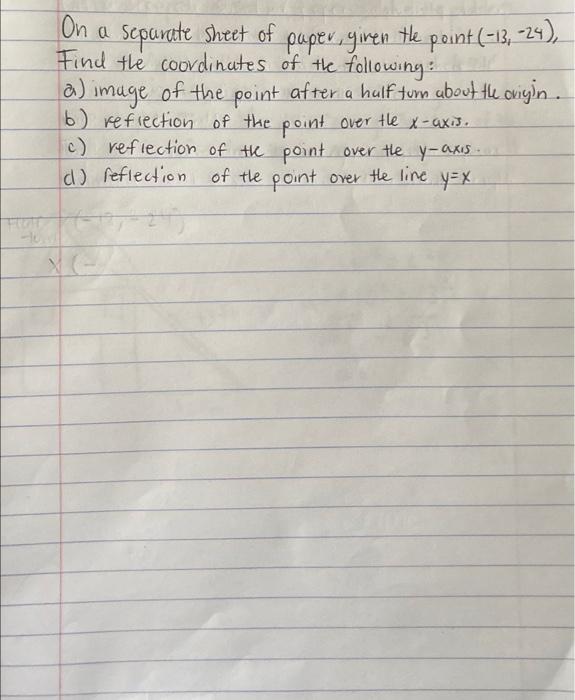 On a separate sheet of paper, given the point (-13, -24),
Find the coordinates of the following:
a) image of the point after a half turn about the origin.
b) reflection of the point over the x-axis.
c) reflection of the point over the y-axis.
d) reflection of the point over the line y=x
(-13, -24)
x (-